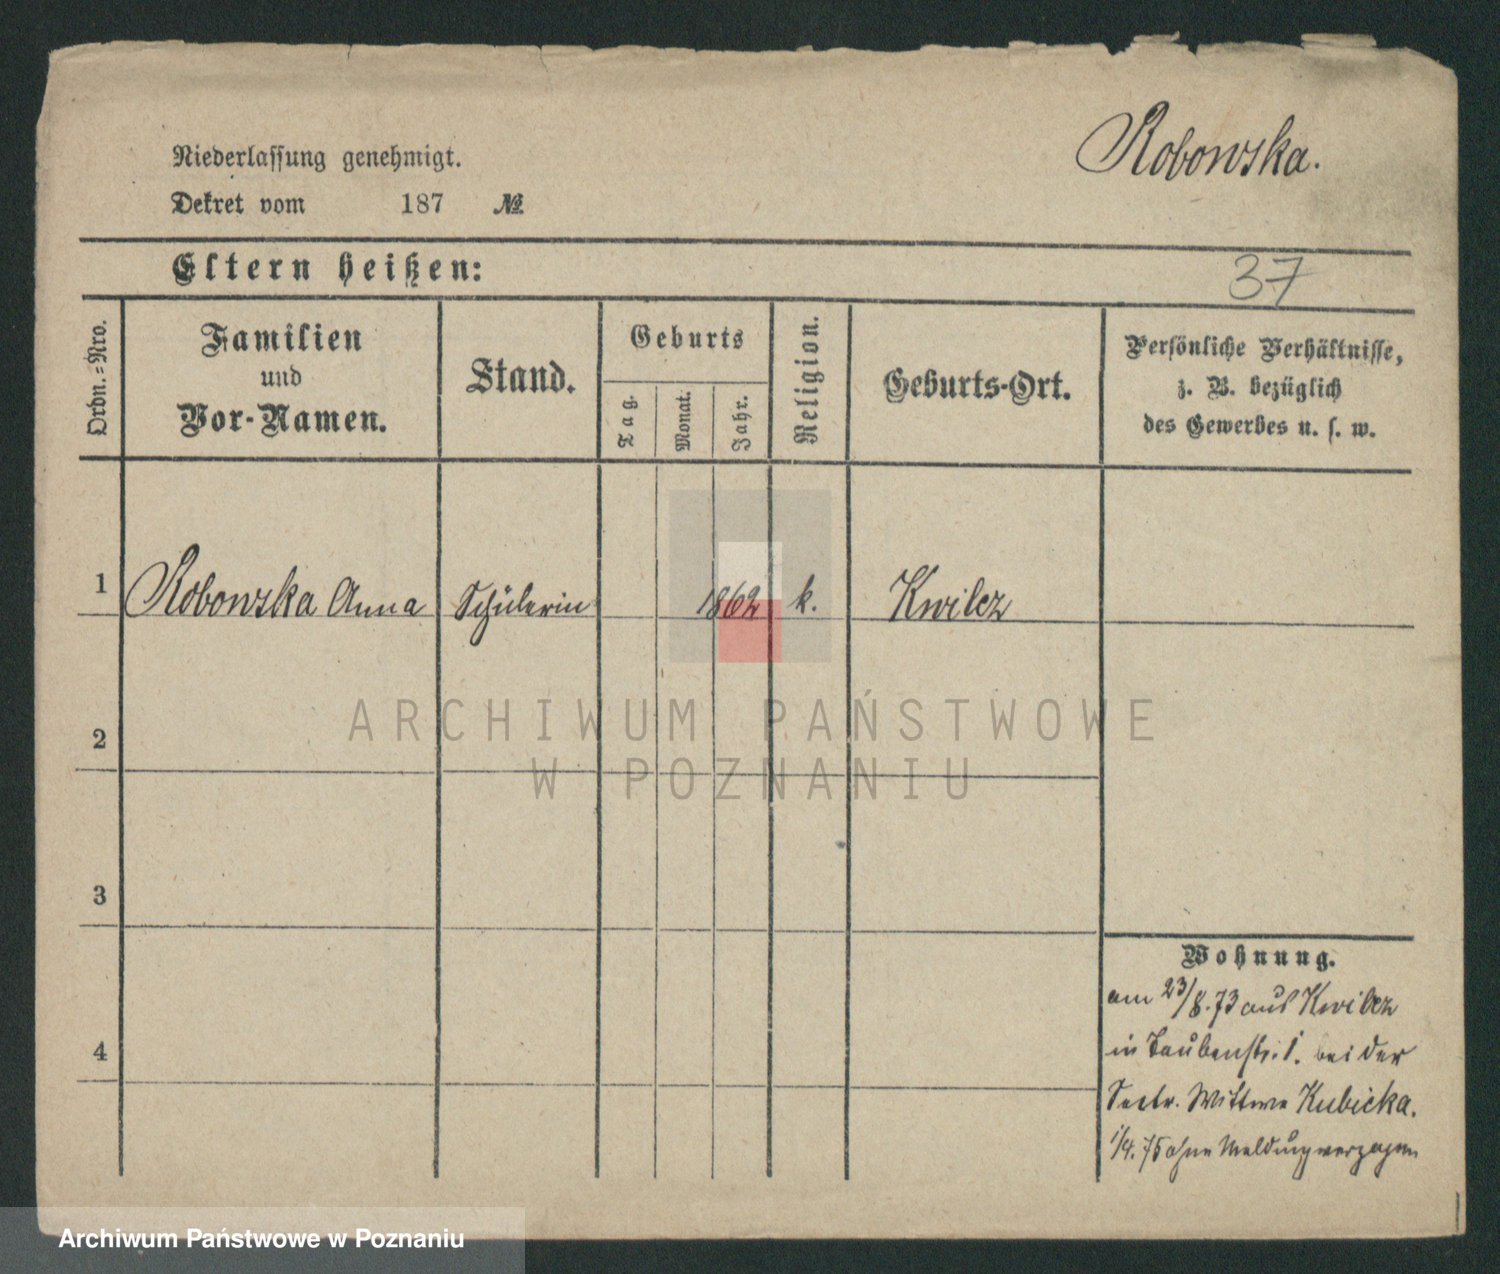 Robowska.
Niederlassung genehmigt.
Dekret vom 187 №
Eltern heißen:
37
Ordn.-Nro.
Familien
und
Vor-Namen.
Stand.
Geburts
Tag.
Monat.
Jahr.
Religion.
Geburts-Ort.
Persönliche Verhältnisse,
z. B. bezüglich
des Gewerbes u. s. w.
1 Robowska Anna Schülerin 1862 k. Kwilcz
ARCHIWUM PAŃSTWOWE
W POZNANIU
2
3
4
Wohnung.
am 23/8.73 aus Kwilcz
in Taubenstr. 1. bei der
Wittwe Kubicka.
1/4.75 ohne Meldung verzogen
Archiwum Państwowe w Poznaniu